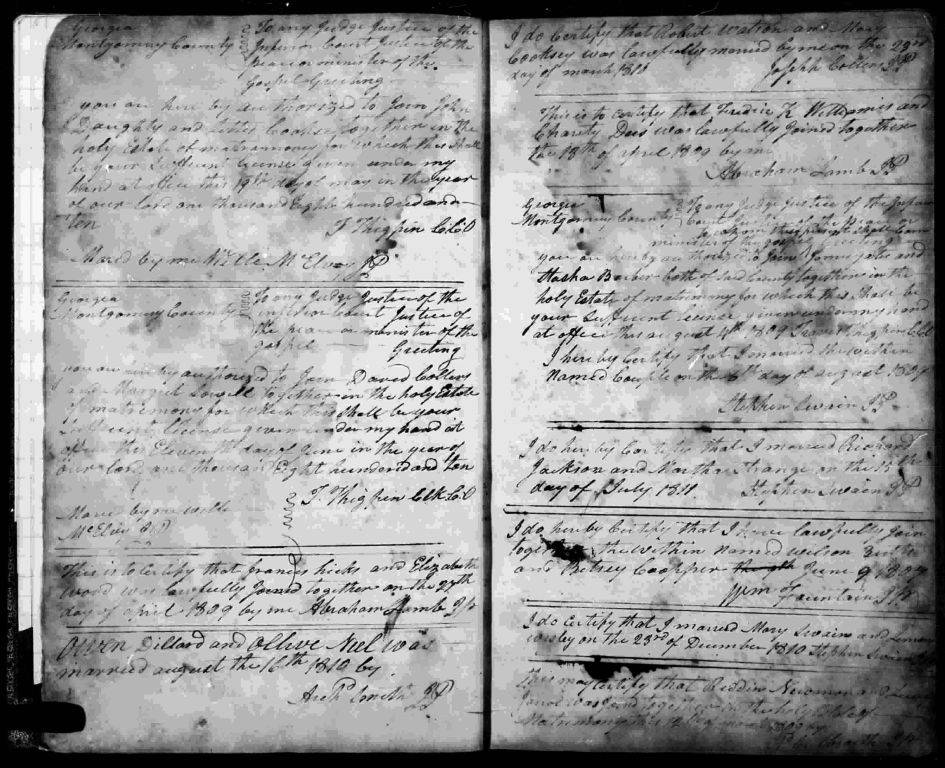 Georgia
Montgomery County
To any Judge Justice of the
Inferior Court Justice of the
peace or minister of the
Gospel Greeting
you are here by authorized to Join John
Daughty and together in the
holy Estate of matrimoney for which this shall
be your License given under my
hand at office this 19th day of may in the year
of our lord one thousand Eight hundred and
ten
T Thigpin Clk C.O
Mared by me McElvey JP
Georgia
Montgomery County
To any Judge Justice of the
inferior Court Justice of
the peace or minister of the
gospel Greeting
you are hereby authorized to Join David Collers
and Margret together in the holy Estate
of matrimony for which this shall be your
License given under my hand at
office this Eleventh day of June in the year of
our lord one thousand Eight hundred and ten
T. Thigpin Clk C.O
Mared by me
McElvey JP
This is to Certify that frances hicks and Elizabeth
word was lawfully Joined together on the 27th
day of april 1809 by me Abraham Lamb J.P
Owen Dillard and Ollive Neel was
married august the 16th 1810 by
Archd Smith JP
I do Certify that Robert Watson and Mary
Cooksey was lawfully maried by me on the 23rd
day of march 1811 Joseph Collers JP
This is to certify that Fredric K Williames and
Charity Dees was lawfully Joined together
the 18th of april 1809 by me
Abraham Lamb JP
Georgia
Montgomery County
To any Judge Justice of the Inferior
Court Justice of the Peace or
minister of the gospel Greeting
you are hereby authorized to Join and
Barber both of sd County together in the
holy Estate of matrimony for which this shall be
your Sufficient License given under my hand
at office this august 4th 1809
I hereby Certify that I married the within
Named Couple on the 6th day of august 1809
Stephen Swain JP
I do hereby Certify that I married Richard
Jackson and Martha Strange on the 15th
day of July 1811. Stephen Swain JP
I do hereby Certify that I have lawfully Join
together the within Named Wilson
and Betsey Coopper June 9
Wm Fountain J.P
I do Certify that I married Mary Swain and
on the 23rd of December 1810 Stephen Swain
this may Certify that Reddin Newman and
was Joined together in the holy State of
Matrimony this